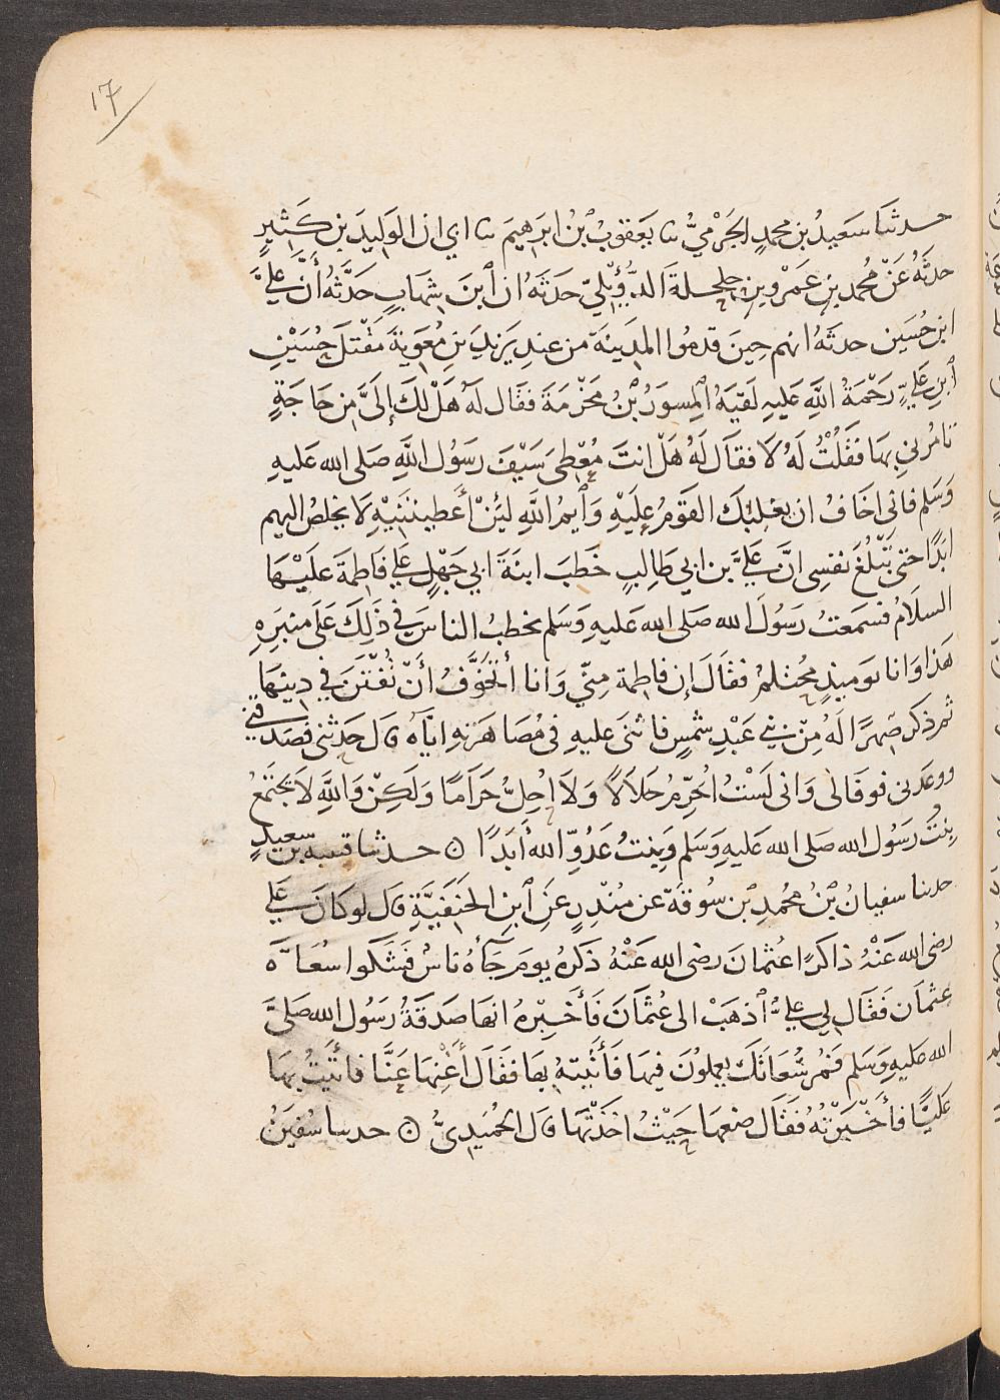 ١٧
حدثنا سَعِيدُ بن محمدٍ الجَرْمِيُّ نا يَعقوبُ بْنُ ابرَهِيمَ نا ابي ان الوَلِيدَ بن كَثِيرٍ
حدثَهُ عَنْ مُحمد بنِ عَمْرو بنِ حلحلةَ الدُّؤَلِيّ حَدثَهُ ان ٱبنَ شِهَابٍ حَدَّثهُ أنَّ عَلِيَّ
ابن حُسَين حدثَهُ انهم حِينَ قدمُوا المدَينَة من عندِ يَزيدَ بنِ مُعَوِيةَ مَقْتلَ حُسَيْنِ
ٱبنِ عَلِيّ رَحْمَةُ اللَّهِ عَليهِ لَقيَهُ ٱلمِسوَرُ بْنُ مَخْرمَةَ فقَال لَهُ هَلْ لَكَ إلَىَّ مِن حَاجَةٍ
تامُرُنِي بِهَا فقَلُتُ لَهُ لَا فقاَل لَهُ هَلْ انتَ مُعْطِىَ سَيْفَ رَسُول اللَّهِ صَلى الله عَليهِ
وَسَلم فانى اخَافُ ان يغلبَك القَومُ عليَهِ وَٱيمُ اللَّهِ لئِنْ أعَطيتنَيْهِ لَا يخلصُ اليهم
ابَدًا حتى تَبْلُغَ نفسِى انَّ عَلَيَّ بن ابي طَاِلبٍ خَطَبَ ابنَةَ ابي جَهْلٍ عَلَى فاطِمَةَ عَليْهَا
السلَامُ فسَمَعتُ رَسُولَ الله صَلى الله عَليهِ وَسَلم يخطبُ الناسَ في ذَلِكَ عَلَى منبَرِهِ
هَذا وَانا يوميذٍ محُتلمٌ فقَالَ إن فاطِمة مِنّي وَانا أتَخَوَّفُ أنْ تُفْتَنَ في دِينِهَا
ثم ذكرَ صِهرًا لَهُ مِنْ بني عَبْدِ شمسٍ فاثنَى عليهِ فى مُصَاهَرتِهِ ايّاهُ قال حَدثنى فصَدقني
ووعَدنى فوفَا لى وَانى لَسْتُ احُرِّمُ حَلَالًا وَلَا احُِلُّ حَرَامًا وَلَكِنْ وَاللَّهِ لَا تَجتَمعُ
بِنتُ رَسُول الله صَلى الله عَليهِ وَسَلم وَبِنتُ عَدُوّ الله أبَدًا ۞ حدثنا قتيبه بن سعيدٍ
حدثنا سفيانُ بْنُ مُحمدِ بْن سُوقةَ عن مُنْذِرٍ عَنِ ٱبنِ الحَنَفيَّةِ قال لو كانَ عَليّ
رضى الله عَنْهُ ذاكرًا عُثمانَ رضى الله عَنْهُ ذكَرهُ يومَ جَآءهُ ناسٌ فشَكوا سُعَاةَ
عثمانَ فقَال لِي عَلِيٌّ ٱذهَبْ الى عُثمَانَ فأَخَبِرهُ انهَا صَدقَةُ رَسُول الله صَلىَّ
الله عَليهِ وَسَلم فَمُر سُعَاتَكَ يعملوُنَ فيهَا فَأتَيتهُ بهَا فقَالَ أَغْنِهَا عَنَّا فاتَيتُ بِهَا
عَلِيًّا فأخَبَرتُهُ فقَال ضعهَا حَيثُ اخَذْتهَا قال الحُمَيدِىُّ ۞ حدثنا سُفينُ